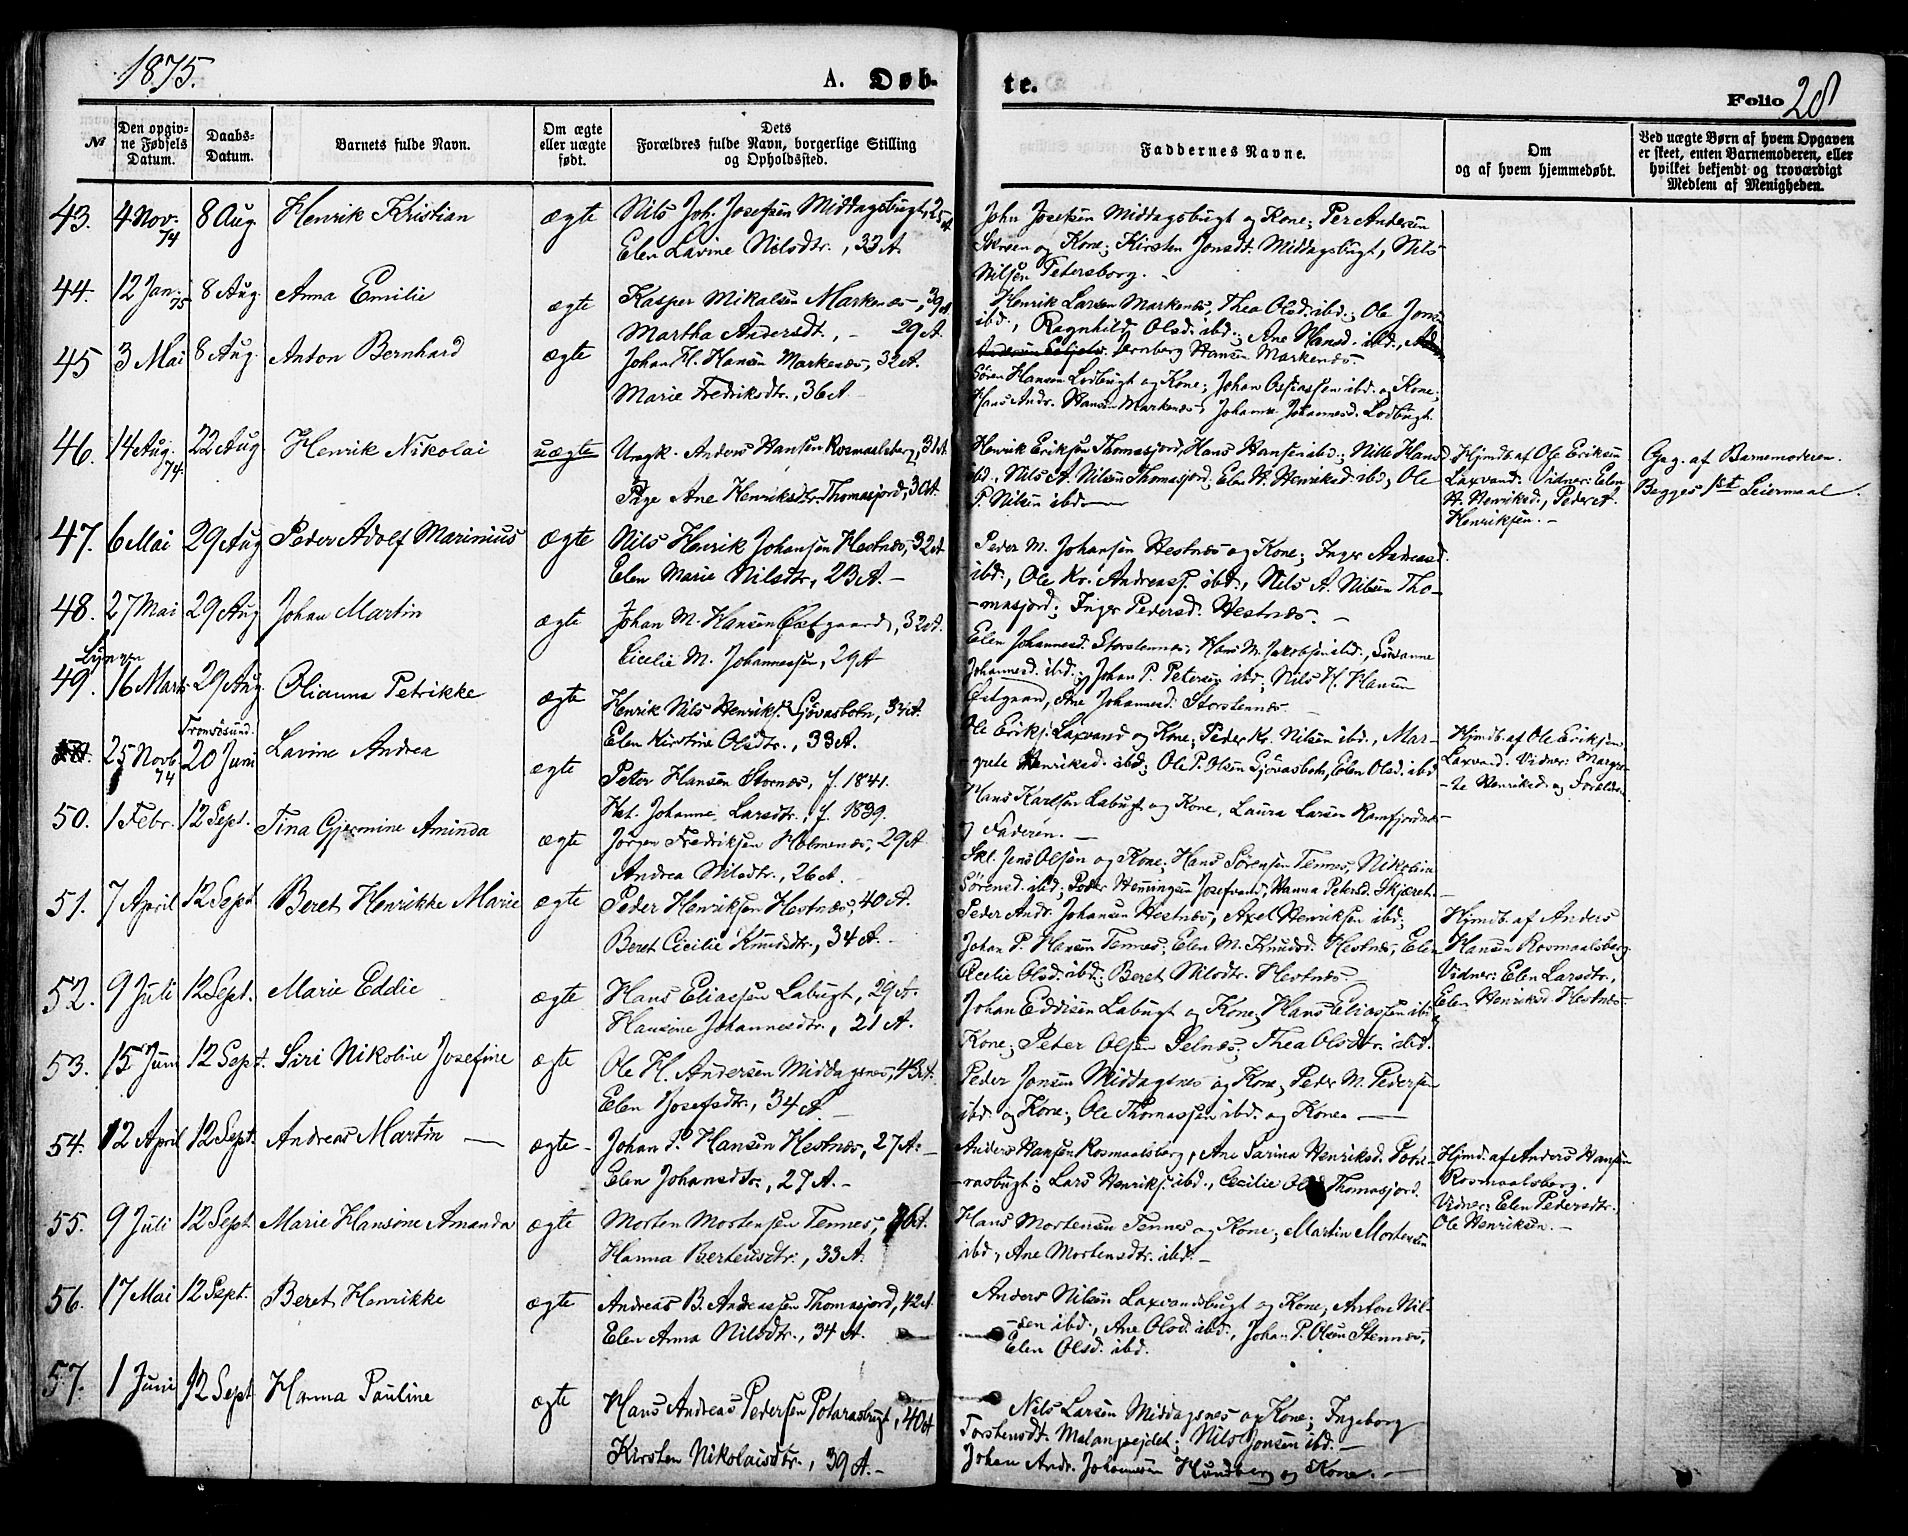 1875.
A. Døb-
te.
Folio 28
№
Den opgiv-
ne Fødsels
Datum.
Daabs-
Datum.
Barnets fulde Navn.
Om ægte
eller uægte
født.
Dets
Forældres fulde Navn, borgerlige Stilling
og Opholdssted.
Faddernes Navne.
Om
og af hvem hjemmedøbt.
Ved uægte Børn af hvem Opgaven
er skeet, enten Barnemoderen, eller
hvilket bekjendt og troværdigt
Medlem af Menigheden.
43. 4 Nov. 74 8 Aug. Henrik Kristian ægte Nils Joh. Josefsen Middagsbugt, 25 A
Elen Lavine Nilsdtr., 33 A.
John Josefsen Middagsbugt og Kone; Per Andersen
og Kone; Kirsten Jonsdt. Middagsbugt, Nils
Nilsen Petersborg.
44. 12 Jan. 75 8 Aug. Anna Emilie ægte Kasper Mikalsen Markenes, 39 A.
Martha Andersdt., - 29 A.
Henrik Larsen Markenes, Thea Olsd. ibd.; Ole Jons.
ibd., Ragnhild Olsd. ibd.; Ane Hansd. ibd.,
Jernberg Hansen Markenæs
45 3 Mai 8 Aug. Anton Bernhard ægte Johan H. Hansen Markenæs, 32 A.
Marie Fredriksdtr., 36 A
Søren Hansen Lodbugt og Kone; Johan ibd. og Kone;
Hans Andr. Hansen Markenæs, Johanna Johannesd. Lodbugt.
46. 14 Aug. 74. 22 Aug Henrik Nikolai uægte Ungk. Anders Hansen Rosmaalsberg, 31 A.
Pige Ane Henriksdtr. Thomasjord, 30 A.
Henrik Eriksen Thomasjord, Hans Hansen ibd.; Nille Hansd
ibd., Nils A. Nilsen Thomasjord; Elen H. Henriksd. ibd, Ole
P. Nilsen ibd.
Hjmdb. af Ole Eriksen
Laxvand. Vidner: Elen
H. Henriksd., Peder A.
Henriksen. -
Opg. af Barnemoderen.
Begges 1st Leiermaal.
47. 6 Mai 29 Aug Peder Adolf Marinius ægte Nils Henrik Johansen Hestnæs, 32 A.
Elen Marie Nilsdtr., 23 A. -
Peder M. Johansen Hestnæs og Kone; Inger Andreasd.
ibd., Ole Kr. Andreass. ibd., Nils A. Nilsen Tho-
-masjord; Inger Pedersd. Hestnæs. -
48. 27 Mai 29 Aug Johan Martin ægte Johan M. Hansen Østgaard, 32 A.
Cicelie M. Johannessen, 29 A
Elen Johannesd. Storstennes, Hans M. Jakobsen ibd., Susanne
Johannesd. ibd.; Johan P. Petersen ibd; Nils H. Hansen
Østgaard, Ane Johannesd. Storstennes.
Lyngen
49. 16 Marts 29 Aug. Olianna Petrikke ægte Henrik Nils Henriks. Sjøvasbotn, 33 A.
Elen Kirstine Olsdtr., 33 A.
Ole Eriks. Laxvand og Kone; Peder Kr. Nilsen ibd., Mar-
-grete Henriksd. ibd; Ole P. Olsen Sjøvasbotn, Elen Olsd. ibd
Hjmdb. af Ole Eriksen
Laxvand. Vidner: Margre-
-te Henriksd. og Forældrene
25 Novb 74 Tromsøsund. 20 Juni Lavine Andrea ægte Peter Hansen Stornes, f. 1841.
Hst. Johanne Larsdtr., f. 1839.
Hans Karlsen Labugt og Kone, Laura Larsen Ramfjordnes
og Faderen.
50. 1 Febr. 12 Sept. Tina Gjermine Aminda ægte Jørgen Fredriksen Holmenes, 29 A
Andrea Nilsdtr., 26 A.
Skl. Jens Olsen og Kone; Hans Sørensen Tennes, Nikoline
Sørensd. ibd; Peder Henningsen Josefvand, Hanna Petersd. Skjæret.
51. 7 April 12 Sept Beret Henrikke Marie ægte Peder Henriksen Hestnæs, 40 A.
Beret Cicilie Knudsdtr., 34 A. -
Peder Andr. Johansen Hestnæs, Axel Henriksen ibd.
Johan P. Hansen Tennes; Elen M. Knudsd. Hestnæs, Elen
Cecilie Olsd. ibd; Beret Nilsdtr. Hestnæs.
Hjmdb. af Anders
Hansen Rosmaalsberg
Vidner: Elen Larsdtr.,
Elen Henriksd. Hestnæs
52. 9 Juli 12 Sept. Marie Eddie ægte Hans Eliassen Labugt, 29 A.
Hansine Johannesdtr., 21 A.
Johan Eddisen Labugt og Kone; Hans Eliassen ibd og
Kone; Peter Olsen Selnes; Thea Olsdtr. ibd.
53. 15 Juni 12 Sept. Siri Nikoline Josefine ægte Ole H. Andersen Middagsnes, 43 A.
Elen Josefsdtr., 34 A. -
Peder Jonsen Middagsnes og Kone; Peder M. Pedersen
ibd. og Kone; Ole Thomassen ibd. og Kone
54. 12 April 12 Sept. Andreas Martin ægte - Johan P. Hansen Hestnæs, 27 A. -
Elen Johansdtr., 27 A. -
Anders Hansen Rosmaalsberg, Ane Sarina Henriksd. Pota-
-rasbugt; Lars Henriks. ibd., Cecilie Olsd Thomasjord.
Hjmd. af Anders Hansen
Rosmaalsberg.
Vidner: Elen Pedersdtr.
Ole Henriksen. -
55. 9 Juli 12 Sept Marie Hansine Amanda ægte Morten Mortensen Tennes, 36 A.
Hanna Berteusdtr., 33 A.
Hans Mortensen Tennes og Kone, Martin Mortensen
ibd, Ane Mortensdtr. ibd. -
56. 17 Mai 12 Sept. Beret Henrikke ægte Andreas B. Andreassen Thomasjord, 42 A.
Elen Anna Nilsdtr., 34 A.
Anders Nilsen Laxvandsbugt og Kone; Anton Nil-
-sen ibd., Ane Olsd. ibd., Johan P. Olsen Stennes;
Elen Olsd. ibd.
57. 1 Juni 12 Sept Hanna Pauline ægte Hans Andreas Pedersen Potarasbugt, 40 A
Kirsten Nikolaisdtr., 39 A. -
Nils Larsen Middagsnes og Kone; Ingeborg
Torstensdt. Malangseidet; Nils Jonsen ibd. -
Johan Andr. Johannesen Hundberg og Kone. -